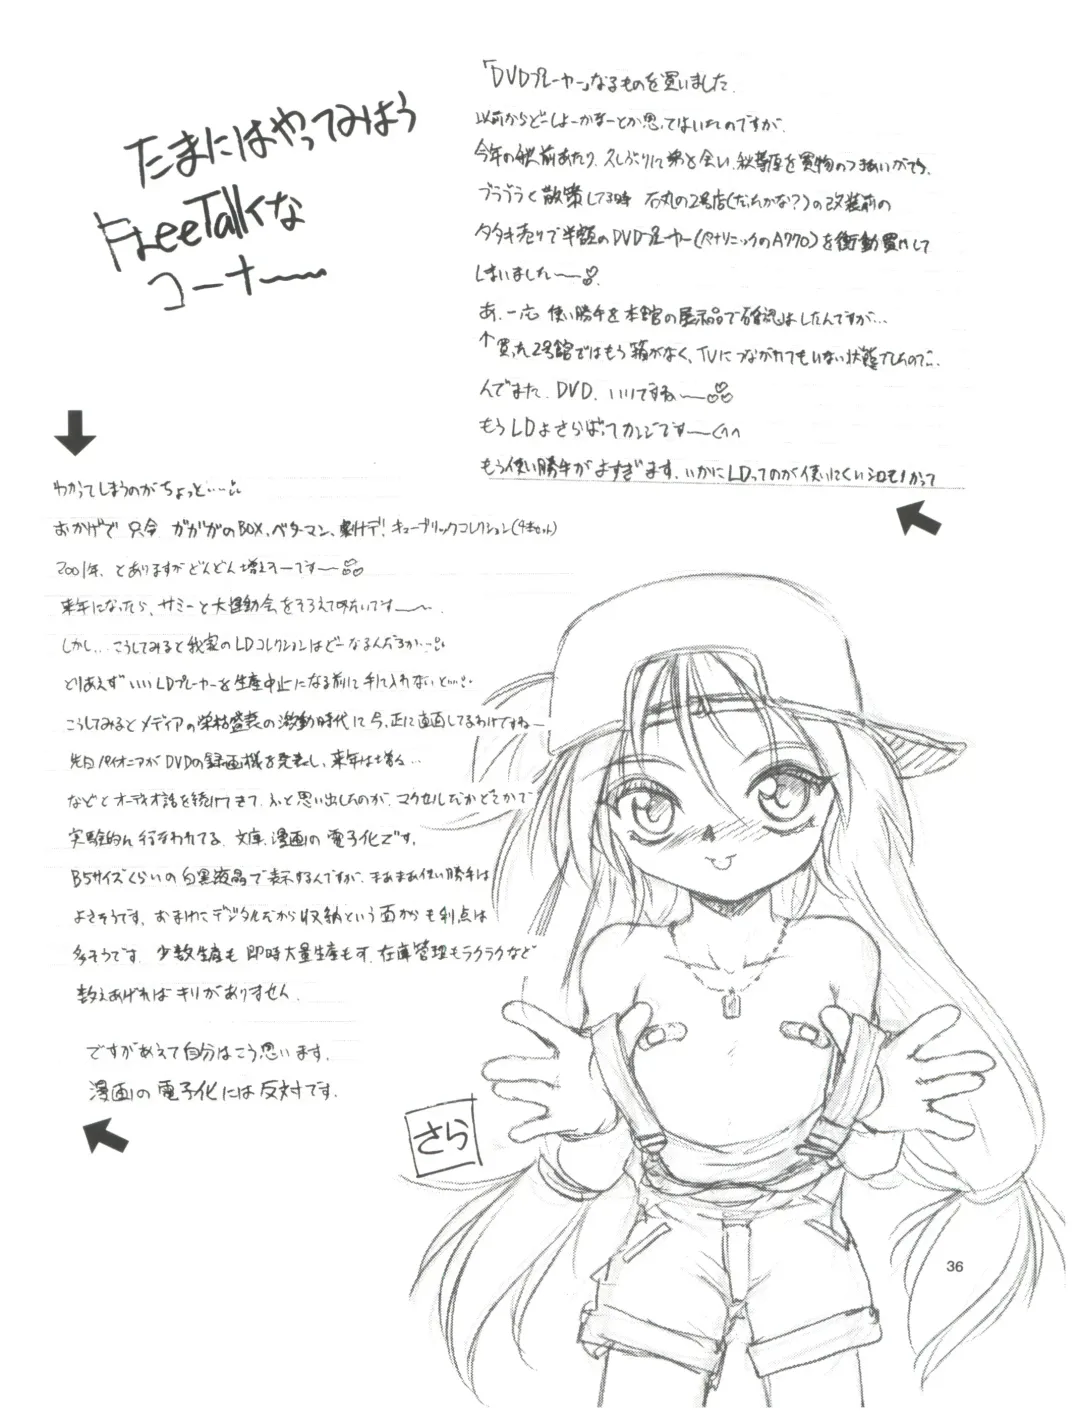 たまにはやってみはう
FreeTalkな
コーナー〜〜
「DVDプレーヤー」なるものを買いました.
以前からどーしよーかなーとか思ってはいたのですが.
今年の秋前あたり. 久しぶりに弟と会い. 秋葉原を買物のつきあいがてら.
ブラブラく散策してる時 石丸の2号店(だったかな?)の改装前の
タタキ売りで半額のDVDプレーヤー(パナソニックのA770)を衝動買いして
しまいました〜〜
あ. 一応 使い勝手を本館の展示品で確認はしたんですが…
↑買った2号館ではもう箱がなく、TVにつながれてもいない状態でしたので…
んでまた. DVD. いいですねー〜
もうLDよさらばってカンジです〜〜く^^
もう使い勝手がよすぎます. いかにLDってのが使いにくいシロモノかって
わかってしまうのがちょっと…
おかげで 只今 ガガガのBOX、ベターマン、劇ナデ! キューブリックコレクション(4本セット)
2001年. とありますがどんどん増えそーです〜
来年になったら、サミーと大運動会をそろえてみたいです〜〜.
しかし… こうしてみると我家のLDコレクションはどーなるんだろか…
とりあえず いいLDプレーヤーを生産中止になる前に手に入れないと…
こうしてみるとメディアの栄枯盛衰の激動時代に今、正に直面してるわけですねー
先日パイオニアがDVDの録画機を発表し、来年は増る…
などとオーディオ話を続けてきて. ふと思い出したのが. マクセルだかどこかで
実験的に行なわれてる. 文庫. 漫画の電子化です.
B5サイズくらいの白黒液晶で表示するんですが. まあまあ使い勝手は
よさそうです. おまけにデジタルだから収納という面からも利点は
多そうです. 少数生産も即時大量生産も可. 在庫管理もラクラクなど
数えあげればキリがありません.
ですがあえて自分はこう思います.
漫画の電子化には反対です.
さら
36